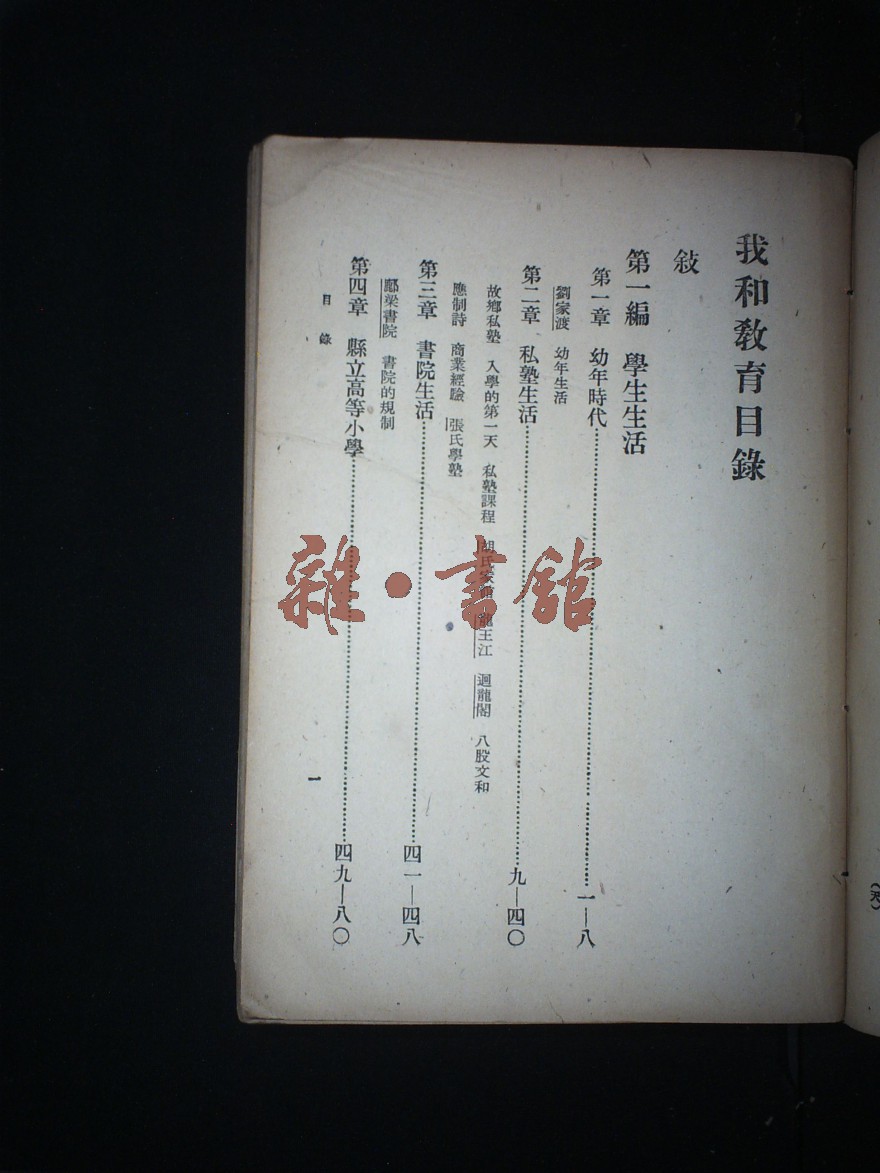 我和教育目錄
敍
第一編　學生生活
第一章　幼年時代……一—八
劉家渡　幼年生活
第二章　私塾生活……九—四〇
故鄉私塾　入學的第一天　私塾課程　胡氏家館　龍王江　迴龍閣　八股文和
應制詩　商業經驗　張氏學塾
第三章　書院生活……四一—四八
酈梁書院　書院的規制
第四章　縣立高等小學……四九—八〇
目錄
一
雜·書館